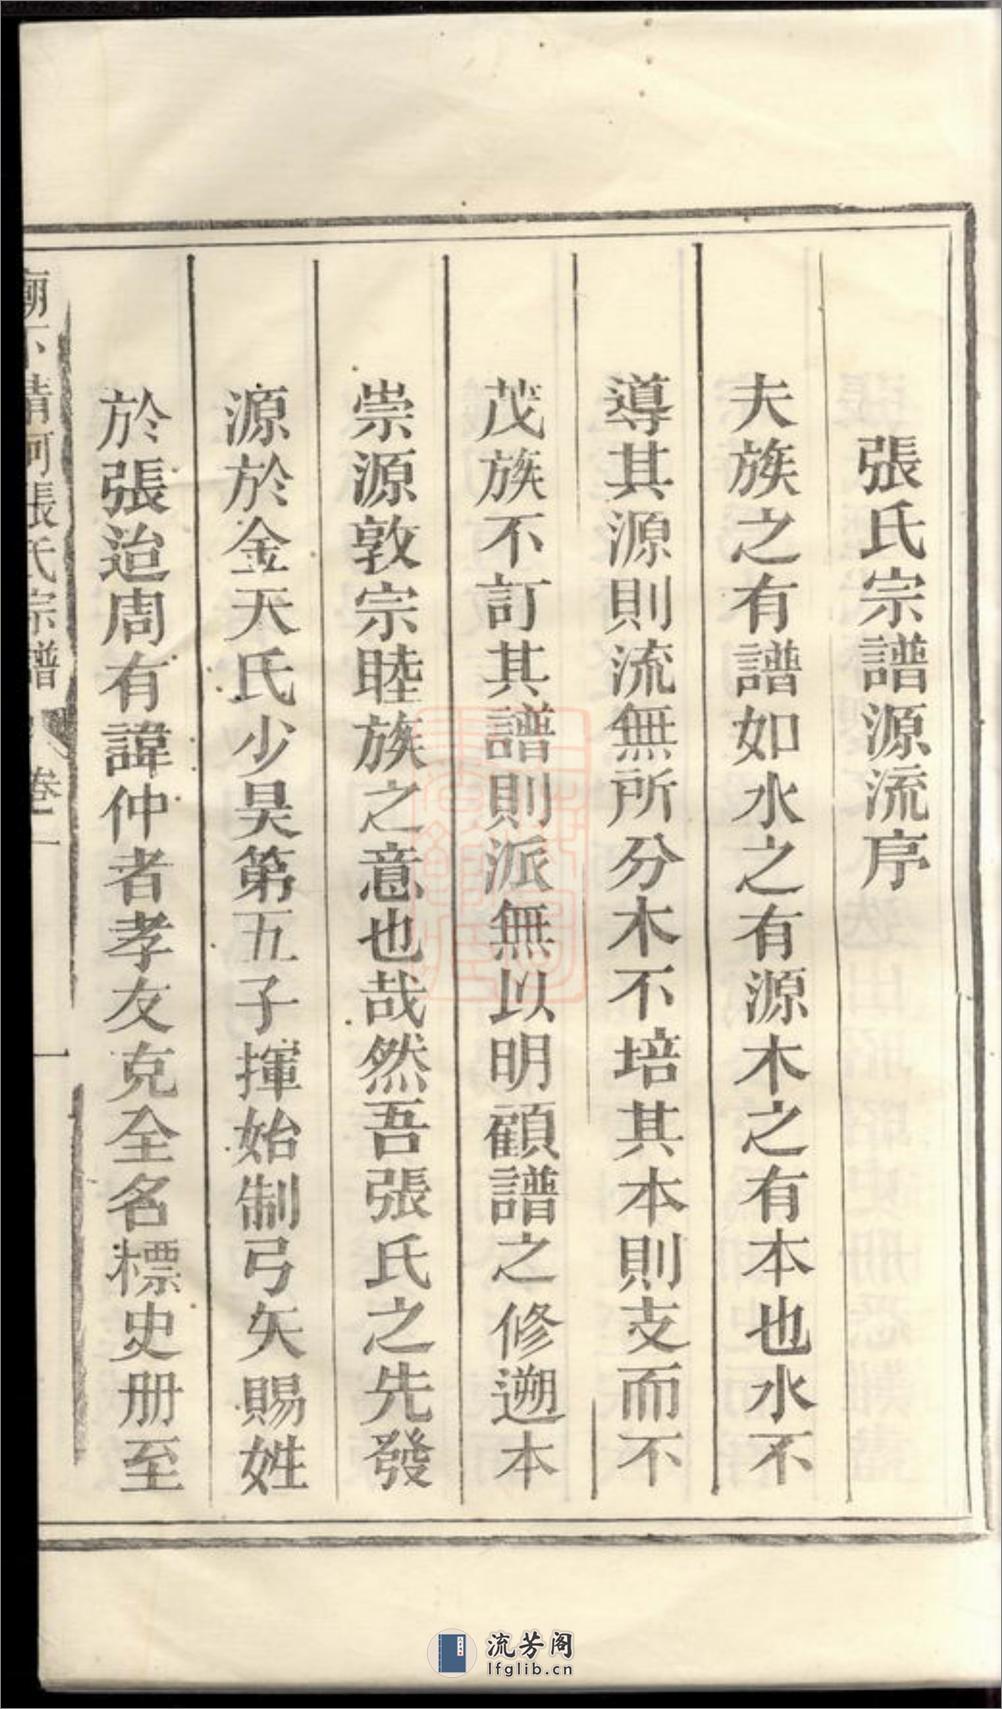 張氏宗譜源流序
夫族之有譜如水之有源木之有本也水不
導其源則流無所分木不培其本則支而不
茂族不訂其譜則派無以明顧譜之修遡本
崇源敦宗睦族之意也哉然吾張氏之先發
源於金天氏少昊第五子揮始制弓矢賜姓
於張迨周有諱仲者孝友克全名標史册至
清河張氏宗譜
卷一
一
流芳阁
lfglib.cn